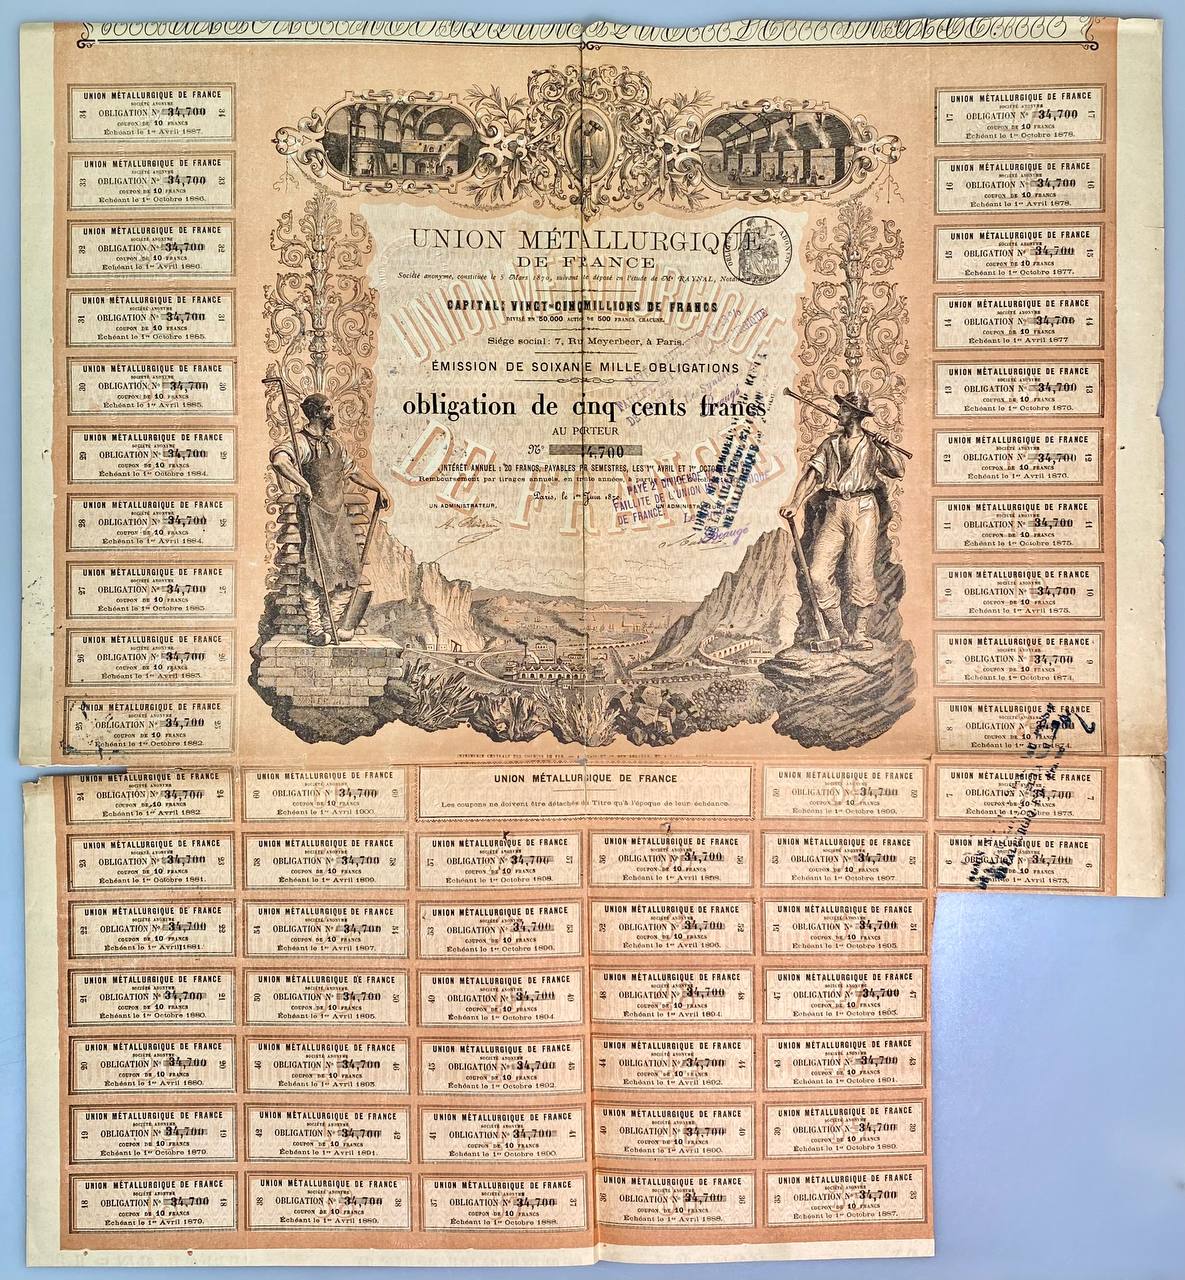 UNION MÉTALLURGIQUE
DE FRANCE
Société anonyme, constituée le 5 Mars 1870, suivant acte déposé en l'étude de Me RAYNAL, Notaire à Paris.
CAPITAL: VINGT-CINQ MILLIONS DE FRANCS
DIVISÉ EN 50,000 ACTIONS DE 500 FRANCS CHACUNE.
Siége social: 7, Rue Meyerbeer, à Paris.
ÉMISSION DE SOIXANTE MILLE OBLIGATIONS
obligation de cinq cents francs
AU PORTEUR
No 34,700
INTÉRÊT ANNUEL: 20 FRANCS, PAYABLES PAR SEMESTRES, LES 1er AVRIL ET 1er OCTOBRE
Remboursement par tirages annuels, en trente années, à partir
Paris, le 1er Juin 1870
UN ADMINISTRATEUR, UN ADMINISTRATEUR,
PAYÉ 2e DIVIDENDE
FAILLITE DE L'UNION
DE FRANCE
Beaugé
UNION MÉTALLURGIQUE DE FRANCE
SOCIÉTÉ ANONYME
34 OBLIGATION No 34,700 34
COUPON DE 10 FRANCS
Échéant le 1er Avril 1887.
UNION MÉTALLURGIQUE DE FRANCE
SOCIÉTÉ ANONYME
17 OBLIGATION No 34,700 17
COUPON DE 10 FRANCS
Échéant le 1er Octobre 1878.
UNION MÉTALLURGIQUE DE FRANCE
SOCIÉTÉ ANONYME
33 OBLIGATION No 34,700 33
COUPON DE 10 FRANCS
Échéant le 1er Octobre 1886.
UNION MÉTALLURGIQUE DE FRANCE
SOCIÉTÉ ANONYME
16 OBLIGATION No 34,700 16
COUPON DE 10 FRANCS
Échéant le 1er Avril 1878.
UNION MÉTALLURGIQUE DE FRANCE
SOCIÉTÉ ANONYME
32 OBLIGATION No 34,700 32
COUPON DE 10 FRANCS
Échéant le 1er Avril 1886.
UNION MÉTALLURGIQUE DE FRANCE
SOCIÉTÉ ANONYME
15 OBLIGATION No 34,700 15
COUPON DE 10 FRANCS
Échéant le 1er Octobre 1877.
UNION MÉTALLURGIQUE DE FRANCE
SOCIÉTÉ ANONYME
31 OBLIGATION No 34,700 31
COUPON DE 10 FRANCS
Échéant le 1er Octobre 1885.
UNION MÉTALLURGIQUE DE FRANCE
SOCIÉTÉ ANONYME
14 OBLIGATION No 34,700 14
COUPON DE 10 FRANCS
Échéant le 1er Avril 1877
UNION MÉTALLURGIQUE DE FRANCE
SOCIÉTÉ ANONYME
30 OBLIGATION No 34,700 30
COUPON DE 10 FRANCS
Échéant le 1er Avril 1885.
UNION MÉTALLURGIQUE DE FRANCE
SOCIÉTÉ ANONYME
13 OBLIGATION No 34,700 13
COUPON DE 10 FRANCS
Échéant le 1er Octobre 1876.
UNION MÉTALLURGIQUE DE FRANCE
SOCIÉTÉ ANONYME
29 OBLIGATION No 34,700 29
COUPON DE 10 FRANCS
Échéant le 1er Octobre 1884.
UNION MÉTALLURGIQUE DE FRANCE
SOCIÉTÉ ANONYME
12 OBLIGATION No 34,700 12
COUPON DE 10 FRANCS
Échéant le 1er Avril 1876.
UNION MÉTALLURGIQUE DE FRANCE
SOCIÉTÉ ANONYME
28 OBLIGATION No 34,700 28
COUPON DE 10 FRANCS
Échéant le 1er Avril 1884.
UNION MÉTALLURGIQUE DE FRANCE
SOCIÉTÉ ANONYME
11 OBLIGATION No 34,700 11
COUPON DE 10 FRANCS
Échéant le 1er Octobre 1875.
UNION MÉTALLURGIQUE DE FRANCE
SOCIÉTÉ ANONYME
27 OBLIGATION No 34,700 27
COUPON DE 10 FRANCS
Échéant le 1er Octobre 1883.
UNION MÉTALLURGIQUE DE FRANCE
SOCIÉTÉ ANONYME
10 OBLIGATION No 34,700 10
COUPON DE 10 FRANCS
Échéant le 1er Avril 1875.
UNION MÉTALLURGIQUE DE FRANCE
SOCIÉTÉ ANONYME
26 OBLIGATION No 34,700 26
COUPON DE 10 FRANCS
Échéant le 1er Avril 1883.
UNION MÉTALLURGIQUE DE FRANCE
SOCIÉTÉ ANONYME
9 OBLIGATION No 34,700 9
COUPON DE 10 FRANCS
Échéant le 1er Octobre 1874.
UNION MÉTALLURGIQUE DE FRANCE
SOCIÉTÉ ANONYME
25 OBLIGATION No 34,700 25
COUPON DE 10 FRANCS
Échéant le 1er Octobre 1882.
UNION MÉTALLURGIQUE DE FRANCE
SOCIÉTÉ ANONYME
8 OBLIGATION No 34,700
COUPON DE 10 FRANCS
Échéant le 1er Avril 1874.
UNION MÉTALLURGIQUE DE FRANCE
24 OBLIGATION No 34,700 24
COUPON DE 10 FRANCS
Échéant le 1er Avril 1882
UNION MÉTALLURGIQUE DE FRANCE
SOCIÉTÉ ANONYME
60 OBLIGATION No 34,700 60
COUPON DE 10 FRANCS
Échéant le 1er Avril 1900.
UNION MÉTALLURGIQUE DE FRANCE
Les coupons ne doivent être détachés du Titre qu'à l'époque de leur échéance.
UNION MÉTALLURGIQUE DE FRANCE
SOCIÉTÉ ANONYME
59 OBLIGATION No 34,700 59
COUPON DE 10 FRANCS
Échéant le 1er Octobre 1899.
UNION MÉTALLURGIQUE DE FRANCE
7 OBLIGATION No 34,700 7
COUPON DE 10 FRANCS
Échéant le 1er Octobre 1873.
UNION MÉTALLURGIQUE DE FRANCE
SOCIÉTÉ ANONYME
23 OBLIGATION No 34,700 23
COUPON DE 10 FRANCS
Échéant le 1er Octobre 1881.
UNION MÉTALLURGIQUE DE FRANCE
SOCIÉTÉ ANONYME
58 OBLIGATION No 34,700 58
COUPON DE 10 FRANCS
Échéant le 1er Avril 1899.
UNION MÉTALLURGIQUE DE FRANCE
SOCIÉTÉ ANONYME
57 OBLIGATION No 34,700 57
COUPON DE 10 FRANCS
Échéant le 1er Octobre 1898.
UNION MÉTALLURGIQUE DE FRANCE
SOCIÉTÉ ANONYME
56 OBLIGATION No 34,700 56
COUPON DE 10 FRANCS
Échéant le 1er Avril 1898.
UNION MÉTALLURGIQUE DE FRANCE
SOCIÉTÉ ANONYME
55 OBLIGATION No 34,700 55
COUPON DE 10 FRANCS
Échéant le 1er Octobre 1897.
UNION MÉTALLURGIQUE DE FRANCE
6 OBLIGATION No 34,700 6
COUPON DE 10 FRANCS
Échéant le 1er Avril 1873.
UNION MÉTALLURGIQUE DE FRANCE
SOCIÉTÉ ANONYME
22 OBLIGATION No 34,700 22
COUPON DE 10 FRANCS
Échéant le 1er Avril 1881.
UNION MÉTALLURGIQUE DE FRANCE
SOCIÉTÉ ANONYME
54 OBLIGATION No 34,700 54
COUPON DE 10 FRANCS
Échéant le 1er Avril 1897.
UNION MÉTALLURGIQUE DE FRANCE
SOCIÉTÉ ANONYME
53 OBLIGATION No 34,700 53
COUPON DE 10 FRANCS
Échéant le 1er Octobre 1896.
UNION MÉTALLURGIQUE DE FRANCE
SOCIÉTÉ ANONYME
52 OBLIGATION No 34,700 52
COUPON DE 10 FRANCS
Échéant le 1er Avril 1896.
UNION MÉTALLURGIQUE DE FRANCE
SOCIÉTÉ ANONYME
51 OBLIGATION No 34,700 51
COUPON DE 10 FRANCS
Échéant le 1er Octobre 1895.
UNION MÉTALLURGIQUE DE FRANCE
SOCIÉTÉ ANONYME
21 OBLIGATION No 34,700 21
COUPON DE 10 FRANCS
Échéant le 1er Octobre 1880.
UNION MÉTALLURGIQUE DE FRANCE
SOCIÉTÉ ANONYME
50 OBLIGATION No 34,700 50
COUPON DE 10 FRANCS
Échéant le 1er Avril 1895.
UNION MÉTALLURGIQUE DE FRANCE
SOCIÉTÉ ANONYME
49 OBLIGATION No 34,700 49
COUPON DE 10 FRANCS
Échéant le 1er Octobre 1894.
UNION MÉTALLURGIQUE DE FRANCE
SOCIÉTÉ ANONYME
48 OBLIGATION No 34,700 48
COUPON DE 10 FRANCS
Échéant le 1er Avril 1894.
UNION MÉTALLURGIQUE DE FRANCE
SOCIÉTÉ ANONYME
47 OBLIGATION No 34,700 47
COUPON DE 10 FRANCS
Échéant le 1er Octobre 1893.
UNION MÉTALLURGIQUE DE FRANCE
SOCIÉTÉ ANONYME
20 OBLIGATION No 34,700 20
COUPON DE 10 FRANCS
Échéant le 1er Avril 1880.
UNION MÉTALLURGIQUE DE FRANCE
SOCIÉTÉ ANONYME
46 OBLIGATION No 34,700 46
COUPON DE 10 FRANCS
Échéant le 1er Avril 1893.
UNION MÉTALLURGIQUE DE FRANCE
SOCIÉTÉ ANONYME
45 OBLIGATION No 34,700 45
COUPON DE 10 FRANCS
Échéant le 1er Octobre 1892.
UNION MÉTALLURGIQUE DE FRANCE
SOCIÉTÉ ANONYME
44 OBLIGATION No 34,700 44
COUPON DE 10 FRANCS
Échéant le 1er Avril 1892.
UNION MÉTALLURGIQUE DE FRANCE
SOCIÉTÉ ANONYME
43 OBLIGATION No 34,700 43
COUPON DE 10 FRANCS
Échéant le 1er Octobre 1891.
UNION MÉTALLURGIQUE DE FRANCE
SOCIÉTÉ ANONYME
19 OBLIGATION No 34,700 19
COUPON DE 10 FRANCS
Échéant le 1er Octobre 1879.
UNION MÉTALLURGIQUE DE FRANCE
SOCIÉTÉ ANONYME
42 OBLIGATION No 34,700 42
COUPON DE 10 FRANCS
Échéant le 1er Avril 1891.
UNION MÉTALLURGIQUE DE FRANCE
SOCIÉTÉ ANONYME
41 OBLIGATION No 34,700 41
COUPON DE 10 FRANCS
Échéant le 1er Octobre 1890.
UNION MÉTALLURGIQUE DE FRANCE
SOCIÉTÉ ANONYME
40 OBLIGATION No 34,700 40
COUPON DE 10 FRANCS
Échéant le 1er Avril 1890.
UNION MÉTALLURGIQUE DE FRANCE
SOCIÉTÉ ANONYME
39 OBLIGATION No 34,700 39
COUPON DE 10 FRANCS
Échéant le 1er Octobre 1889.
UNION MÉTALLURGIQUE DE FRANCE
SOCIÉTÉ ANONYME
18 OBLIGATION No 34,700 18
COUPON DE 10 FRANCS
Échéant le 1er Avril 1879.
UNION MÉTALLURGIQUE DE FRANCE
SOCIÉTÉ ANONYME
38 OBLIGATION No 34,700 38
COUPON DE 10 FRANCS
Échéant le 1er Avril 1889.
UNION MÉTALLURGIQUE DE FRANCE
SOCIÉTÉ ANONYME
37 OBLIGATION No 34,700 37
COUPON DE 10 FRANCS
Échéant le 1er Octobre 1888.
UNION MÉTALLURGIQUE DE FRANCE
SOCIÉTÉ ANONYME
36 OBLIGATION No 34,700 36
COUPON DE 10 FRANCS
Échéant le 1er Avril 1888.
UNION MÉTALLURGIQUE DE FRANCE
SOCIÉTÉ ANONYME
35 OBLIGATION No 34,700 35
COUPON DE 10 FRANCS
Échéant le 1er Octobre 1887.